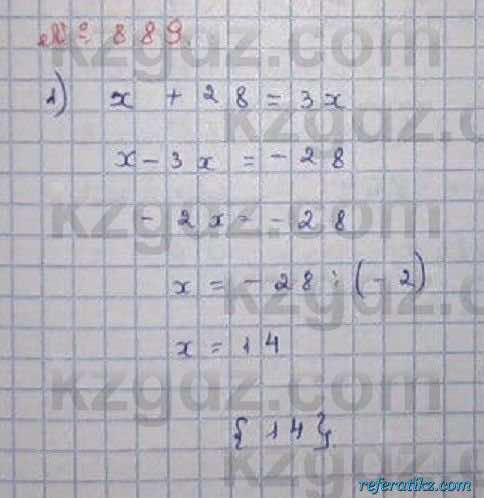 № 889
kzgdz.com
1) x + 28 = 3x
x - 3x = -28
kzgdz.com
-2x = -28
x = -28 : (-2)
kzgdz.com
x = 14
kzgdz.com
{14}
referatikz.com